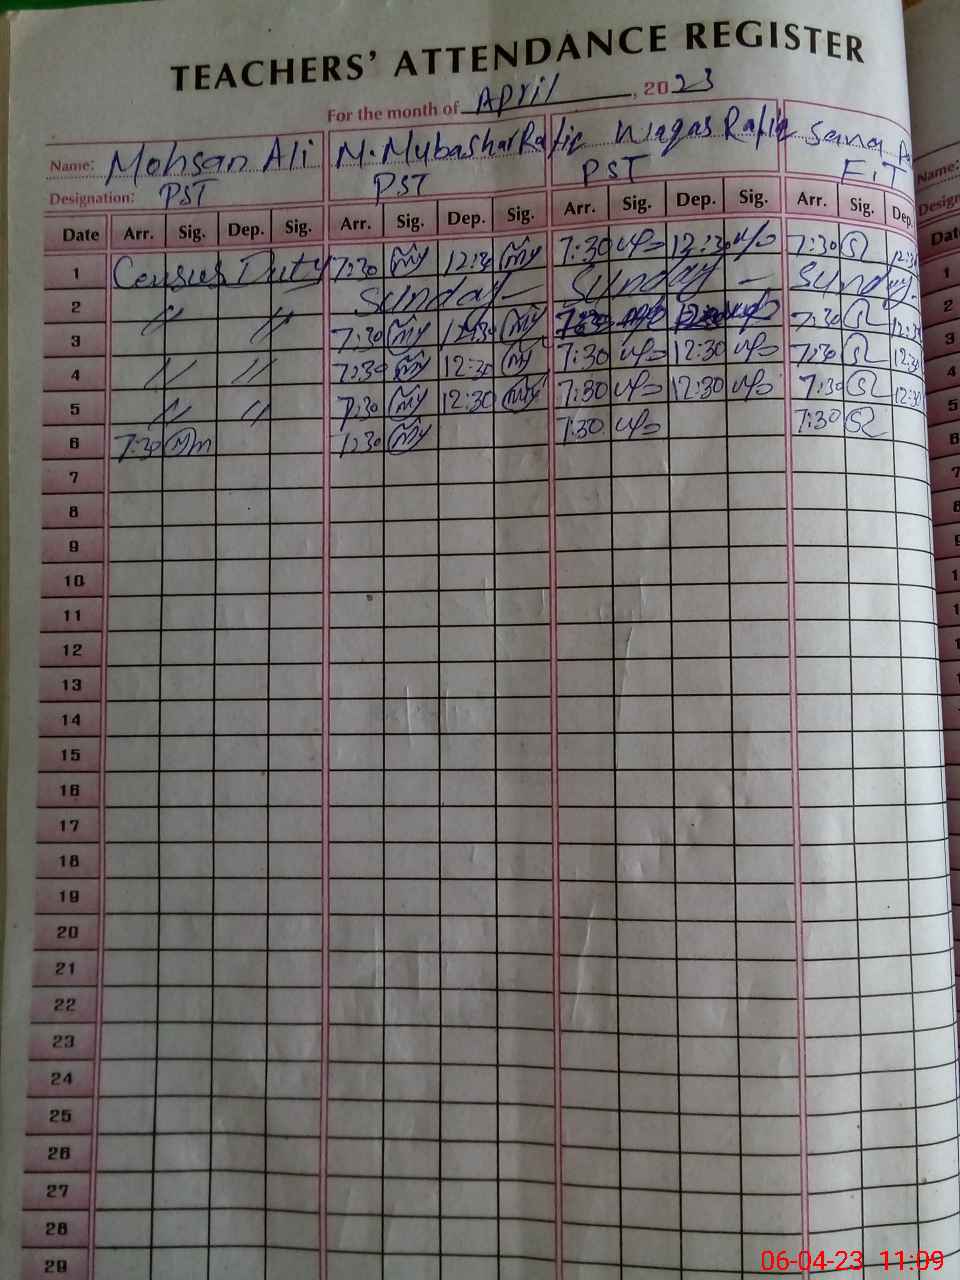 TEACHERS' ATTENDANCE REGISTER
For the month of April, 2023
Name: Mohsan Ali M. Mubashar Rafiq Waqas Rafiq Sana
Designation: PST PST PST E.T
Date Arr. Sig. Dep. Sig. Arr. Sig. Dep. Sig. Arr. Sig. Dep. Sig. Arr. Sig. Dep.
1 Census Duty 7:30 my 12:30 my 7:30 12:30 7:30 12:30
2 " " Sunday - Sunday - Sunday -
3 7:30 my 12:30 my 7:30 12:30
4 " " 7:30 my 12:30 my 7:30 12:30 7:30 12:30
5 " " 7:30 my 12:30 my 7:30 12:30 7:30 12:30
6 7:30 7:30 my 7:30 7:30
7
8
9
10
11
12
13
14
15
16
17
18
19
20
21
22
23
24
25
26
27
28
29
Name:
Design
Dat
1
2
3
4
5
6
7
8
06-04-23 11:09